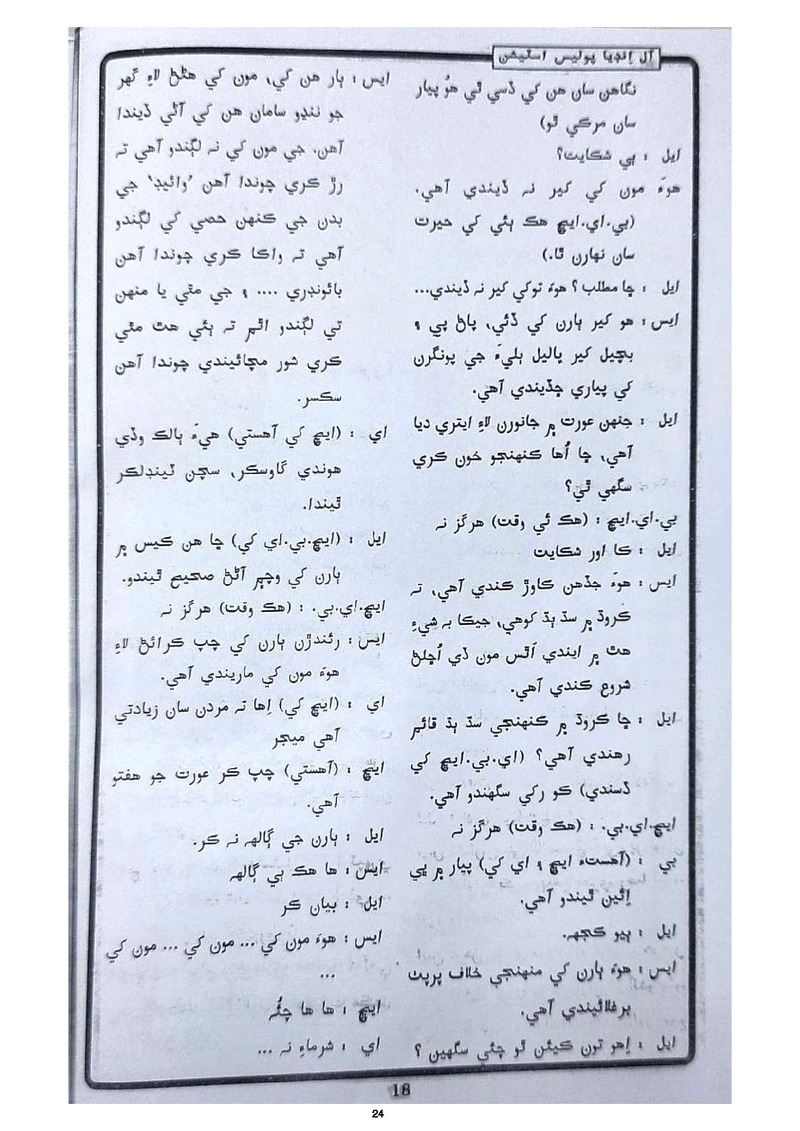 آل اِنڊيا پوليس اسٽيشن
نگاهن سان هن کي ڏسي ٿي هوُ پيار
سان مرڪي ٿو)
ايل : ٻي شڪايت؟
هوءَ مون کي کير نہ ڏيندي آهي.
(بي.اي.ايڇ هڪ ٻئي کي حيرت
سان نهارن ٿا.)
ايل : ڇا مطلب؟ هوءَ توکي کير نہ ڏيندي...
ايس : هو کير ٻارن کي ڏئي، پاڻ پي ۽
بچيل کير پاليل ٻليءَ جي پونگرن
کي پياري ڇڏيندي آهي.
ايل : جنهن عورت ۾ جانورن لاءِ ايتري ديا
آهي، ڇا اُها ڪنهنجو خون ڪري
سگهي ٿي؟
بي.اي.ايڇ : (هڪ ئي وقت) هرگز نہ
ايل : ڪا اور شڪايت
ايس : هوءَ جڏهن ڪاوڙ ڪندي آهي، تہ
ڪروڌ ۾ سڌ ٻڌ کوهي، جيڪا بہ شيءِ
هٿ ۾ ايندي اَٿس مون ڏي اُڇلڻ
شروع ڪندي آهي.
ايل : ڇا ڪروڌ ۾ ڪنهنجي سڌ ٻڌ قائم
رهندي آهي؟ (اي.بي.ايڇ کي
ڏسندي) ڪو رکي سگهندو آهي.
ايڇ.اي.بي. : (هڪ وقت) هرگز نہ
بي : (آهستہ ايڇ ۽ اي کي) پيار ۾ ئي
اِئين ٿيندو آهي.
ايل : ٻيو ڪجهہ.
ايس : هوءَ ٻارن کي منهنجي خلاف پرپٺ
برغلائيندي آهي.
ايل : اِهو تون ڪيئن ٿو چئي سگهين ؟
ايس : ٻار هن کي، مون کي هڻڻ لاءِ گهر
جو ننڍو سامان هن کي آڻي ڏيندا
آهن. جي مون کي نہ لڳندو آهي تہ
رڙ ڪري چوندا آهن ’وائيڊ‘ جي
بدن جي ڪنهن حصي کي لڳندو
آهي تہ واڪا ڪري چوندا آهن
بائونڊري .... ۽ جي مٿي يا منهن
تي لڳندو اٿم تہ ٻئي هٿ مٿي
ڪري شور مچائيندي چوندا آهن
سڪسر.
اي : (ايڇ کي آهستي) هيءَ ٻالڪ وڏي
هوندي گاوسڪر، سچن ٽينڊلڪر
ٿيندا.
ايل : (ايڇ.بي.اي کي) ڇا هن ڪيس ۾
ٻارن کي وچ۾ آڻڻ صحيح ٿيندو.
ايڇ.اي.بي. : (هڪ وقت) هرگز نہ
ايس : رئندڙن ٻارن کي چپ ڪرائڻ لاءِ
هوءَ مون کي ماريندي آهي.
اي : (ايڇ کي) اِها تہ مَردن سان زيادتي
آهي ميجر
ايڇ : (آهستي) چپ ڪر عورت جو هفتو
آهي.
ايل : ٻارن جي ڳالهہ نہ ڪر.
ايس : ها هڪ ٻي ڳالهہ
ايل : بيان ڪر
ايس : هوءَ مون کي ... مون کي ... مون کي
...
ايڇ : ها ها چئُہ
اي : شرماءِ نہ ...
18
24